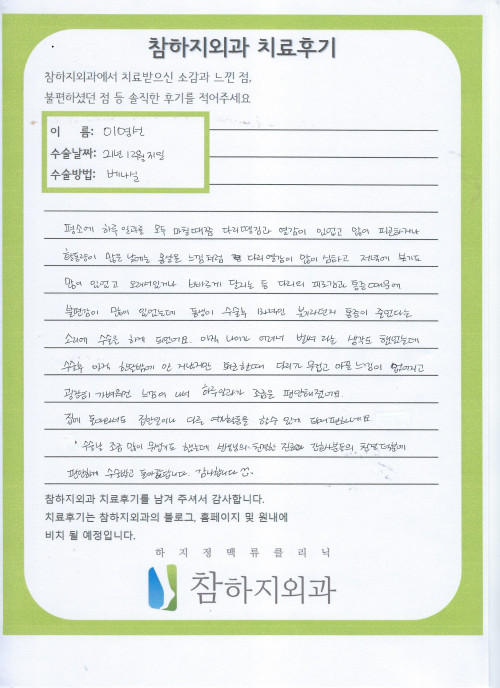 참하지외과 치료후기
참하지외과에서 치료받으신 소감과 느낀 점,
불편하셨던 점 등 솔직한 후기를 적어주세요
이 름: 이영선
수술날짜: 21년 12월 21일
수술방법: 베나실
평소에 하루 일과를 모두 마칠때쯤 다리땡김과 열감이 있었고 많이 피곤하거나
활동량이 많은 날에는 욱신욱신 느낌처럼 다리열감이 많이 심하고 저녁에 붓기도
많이 있었고 오래서있거나 빠르게 달리는 등 다리의 피로감과 통증때문에
불편감이 많이 있었는데 동생이 수술후 1차적인 붓기라던지 통증이 줄었다는
소리에 수술을 하게 되었어요. 아직 나이가 어려서 벌써 라는 생각도 했었는데
수술후 아직 한달밖에 안 지났지만 퇴근할때 다리가 무겁고 아픈느낌이 없어지고
굉장히 가벼워진 느낌이 나서 하루일과가 조금은 편안해졌어요.
집에 돌아와서도 집안일이나 다른 여가활동을 할수 있게 되어 편하네요
수술날 조금 많이 무섭기도 했는데 선생님의 친절한 진료와 간호사분들의 친절 덕분에
편안하게 수술받고 돌아왔습니다. 감사합니다
참하지외과 치료후기를 남겨 주셔서 감사합니다.
치료후기는 참하지외과의 블로그, 홈페이지 및 원내에
비치 될 예정입니다.
하지정맥류클리닉
참하지외과